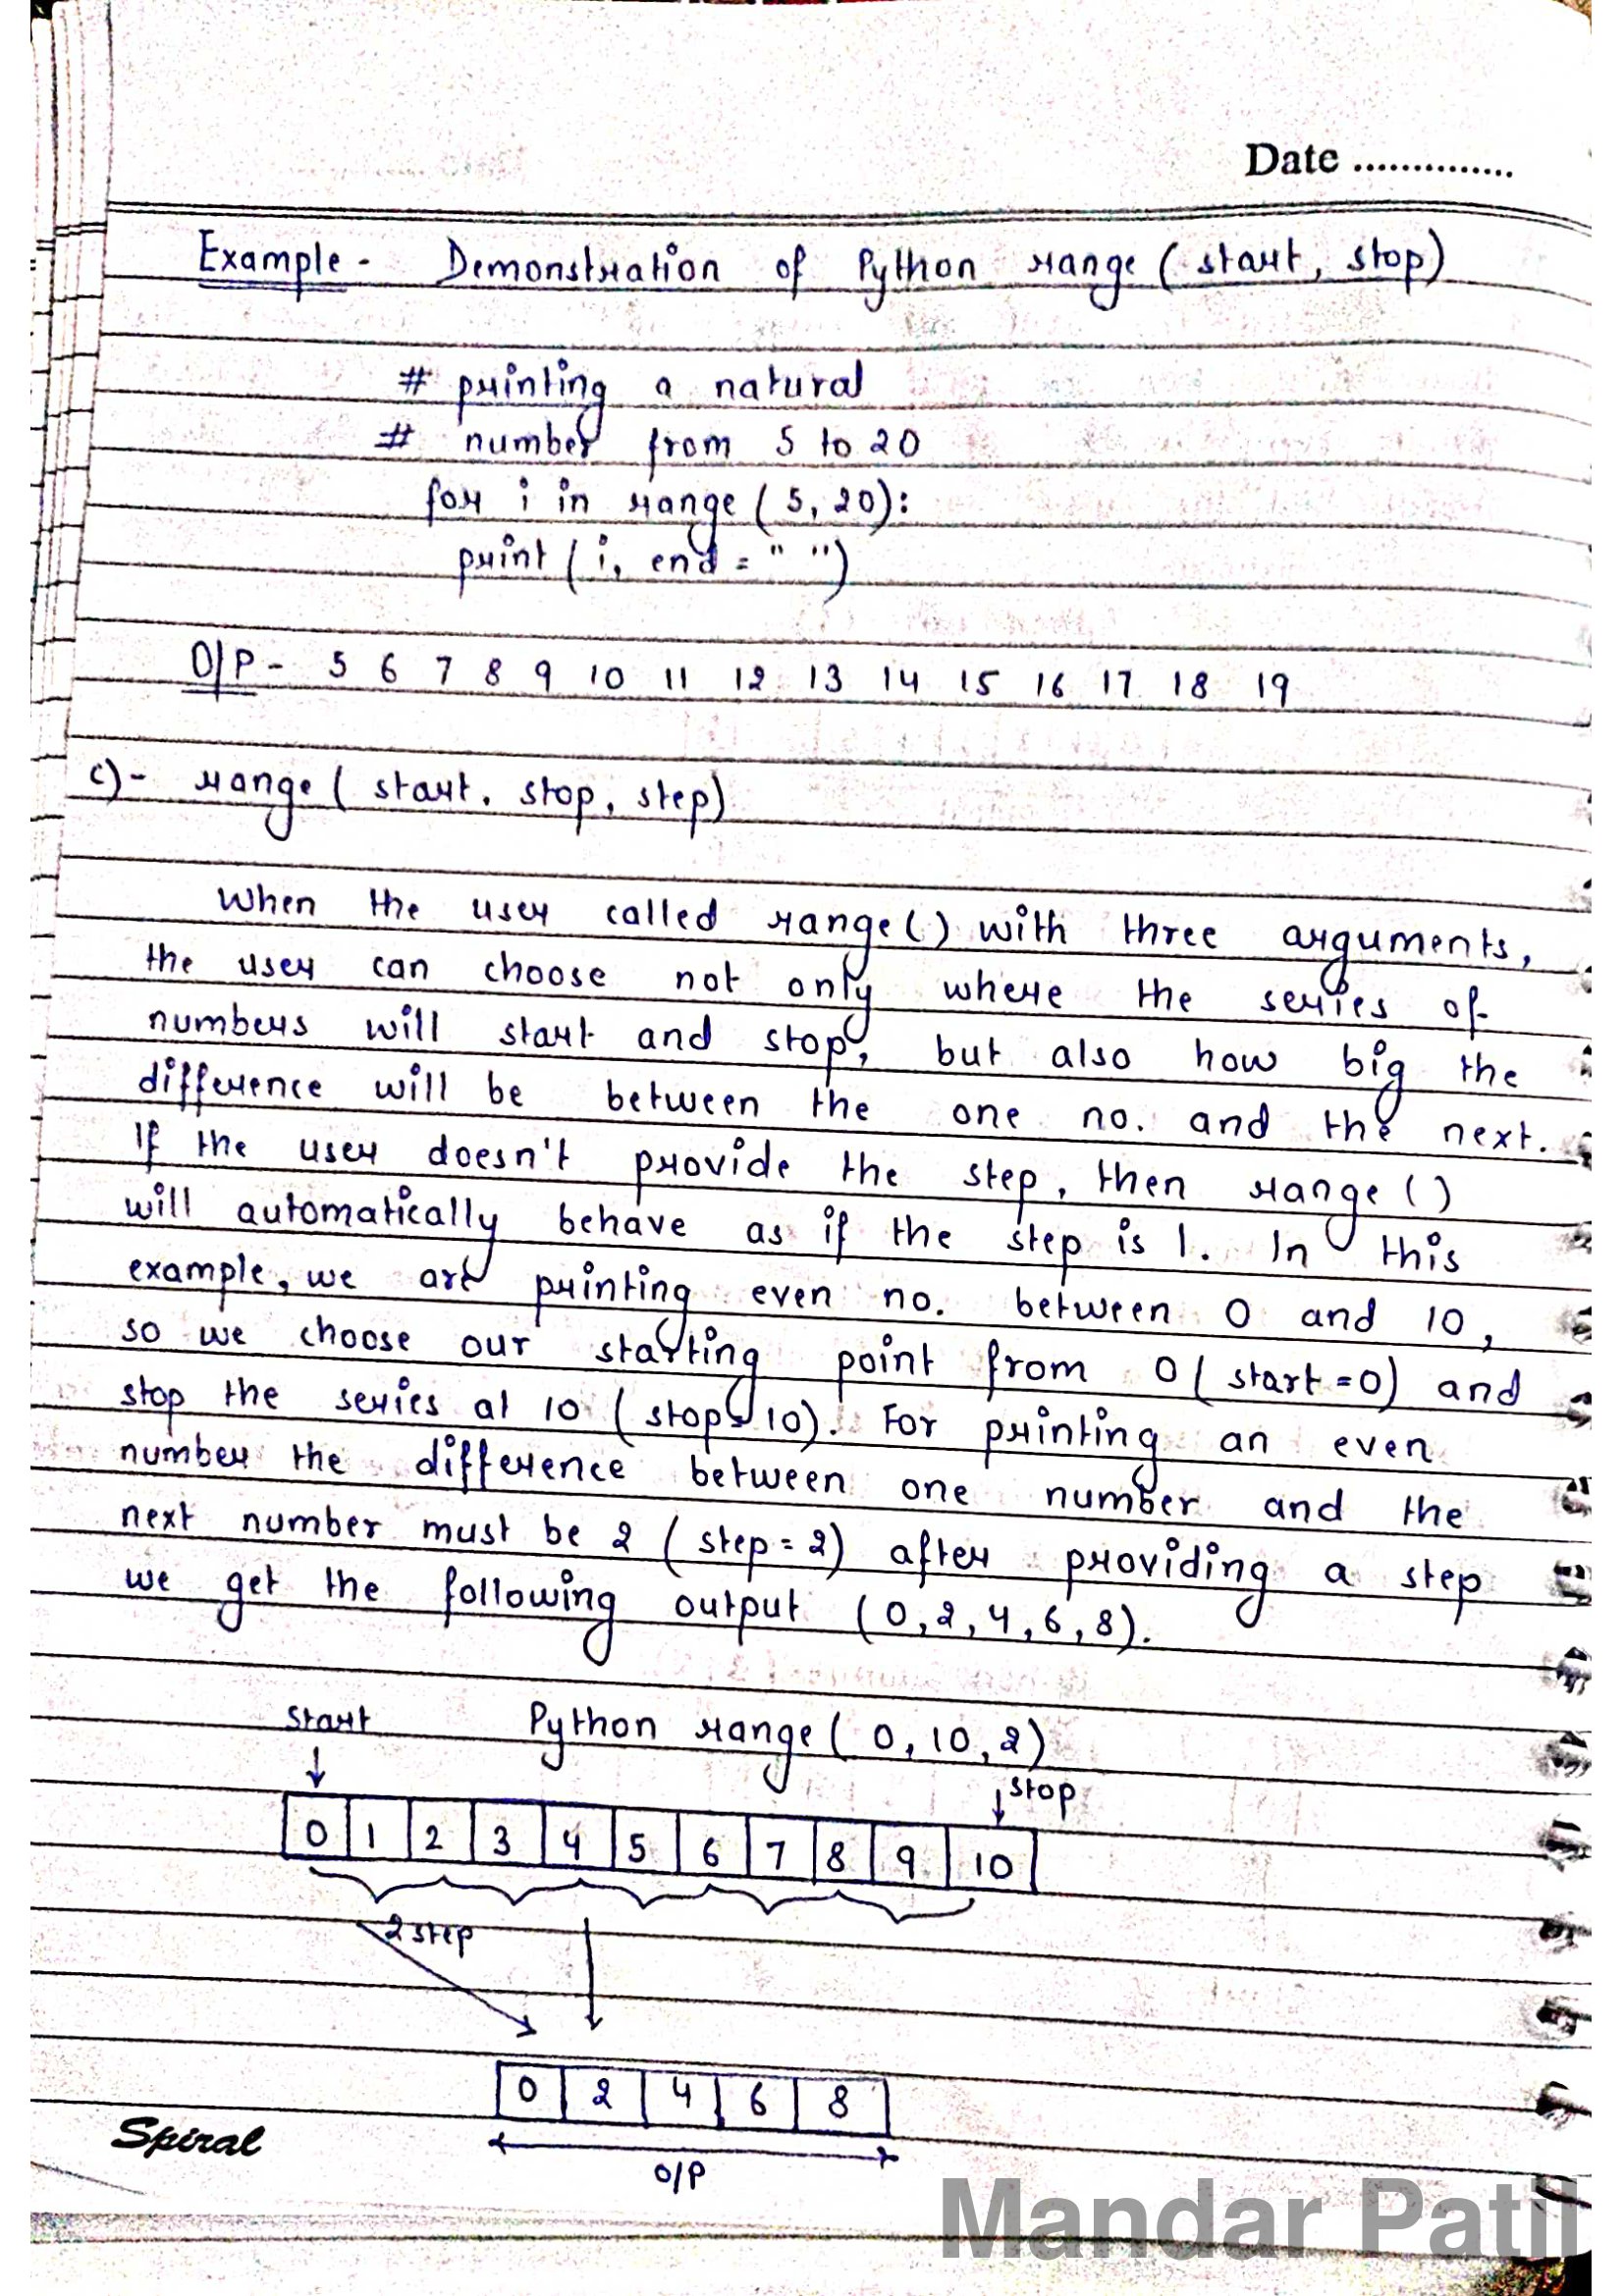 Date ..............
Example - Demonstration of Python range ( start, stop)
# printing a natural
# number from 5 to 20
for i in range ( 5, 20):
print ( i, end = " ")
O/P - 5 6 7 8 9 10 11 12 13 14 15 16 17 18 19
c)- range ( start, stop, step)
When the user called range() with three arguments,
the user can choose not only where the series of
numbers will start and stop, but also how big the
difference will be between the one no. and the next.
If the user doesn't provide the step, then range ()
will automatically behave as if the step is 1. In this
example, we are printing even no. between 0 and 10,
so we choose our starting point from 0 ( start = 0) and
stop the series at 10 ( stop = 10). For printing an even
number the difference between one number and the
next number must be 2 ( step = 2) after providing a step
we get the following output ( 0, 2, 4, 6, 8).
start Python range ( 0, 10, 2)
stop
0 1 2 3 4 5 6 7 8 9 10
2 step
0 2 4 6 8
O/P
Spiral
Mandar Patil